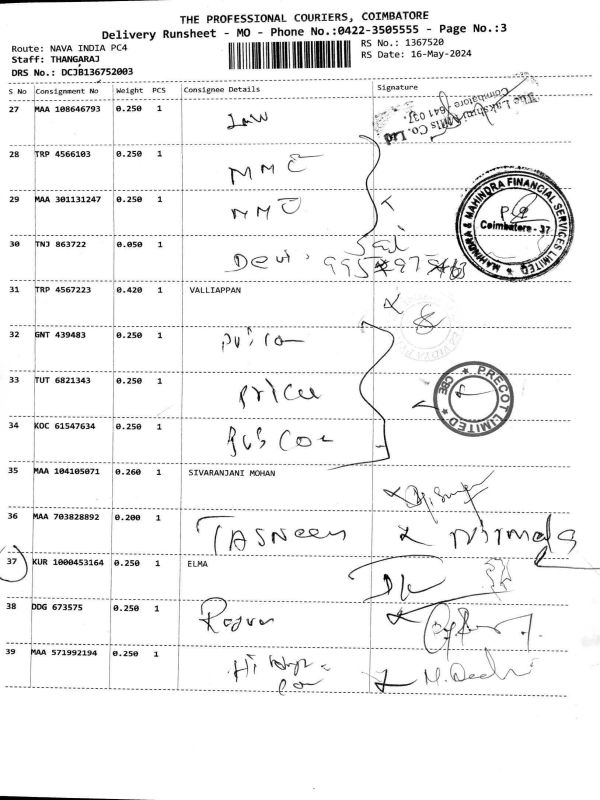 THE PROFESSIONAL COURIERS, COIMBATORE
Delivery Runsheet - MO - Phone No.:0422-3505555 - Page No.:3
Route: NAVA INDIA PC4
Staff: THANGARAJ
DRS No.: DCJB136752003
RS No.: 1367520
RS Date: 16-May-2024
S No Consignment No Weight PCS Consignee Details Signature
27 MAA 108646793 0.250 1 Law
The Lakshmi Mills Co. Ltd
Coimbatore - 641 037.
28 TRP 4566103 0.250 1 MMC
29 MAA 301131247 0.250 1 MMC
MAHINDRA & MAHINDRA FINANCIAL SERVICES LIMITED
Coimbatore - 37
30 TNJ 863722 0.050 1 Devi
31 TRP 4567223 0.420 1 VALLIAPPAN
32 GNT 439483 0.250 1
33 TUT 6821343 0.250 1
PRECOT LIMITED
CBE
34 KOC 61547634 0.250 1
35 MAA 104105071 0.260 1 SIVARANJANI MOHAN
36 MAA 703828892 0.200 1 TASNeem Nirmala
37 KUR 1000453164 0.250 1 ELMA
38 DDG 673575 0.250 1
39 MAA 571992194 0.250 1